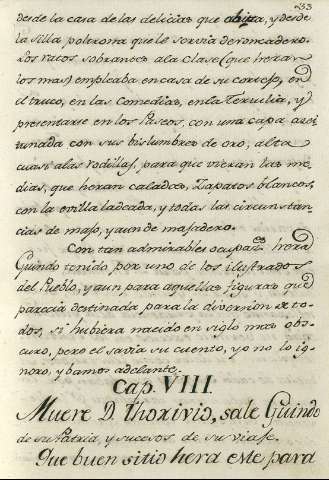 33
desde la casa de las delicias que abita, y desde
la silla poltrona que le servia de roncadero.
Los ratos sobrantes a la Clase (que heran
los mas) empleaba en casa de su cortejo, en
el truco, en las Comedias, en la Tertulia, y
presentarse en los Paseos, con una capa acei
tunada con sus bislumbres de oro, alta
cuasi a las rodillas, para que vieran las me
dias, que heran caladas, Zapatos blancos,
con la evilla ladeada, y todas las circunstan
cias de majo, y aun de majadero.
Con tan admirables ocupac.es hera
Guindo tenido por uno de los ilustrados
del Pueblo, y aun para aquellas figuras que
parecia destinada para la diversion de to-
dos, si hubiera nacido en siglo mas obs-
curo, pero el savia su cuento, yo no lo ig-
noro, y bamos adelante.
Cap. VIII.
Muere D. Thorivio, sale Guindo
de su Patria, y sucesos de su viaje.
Que buen sitio hera este para